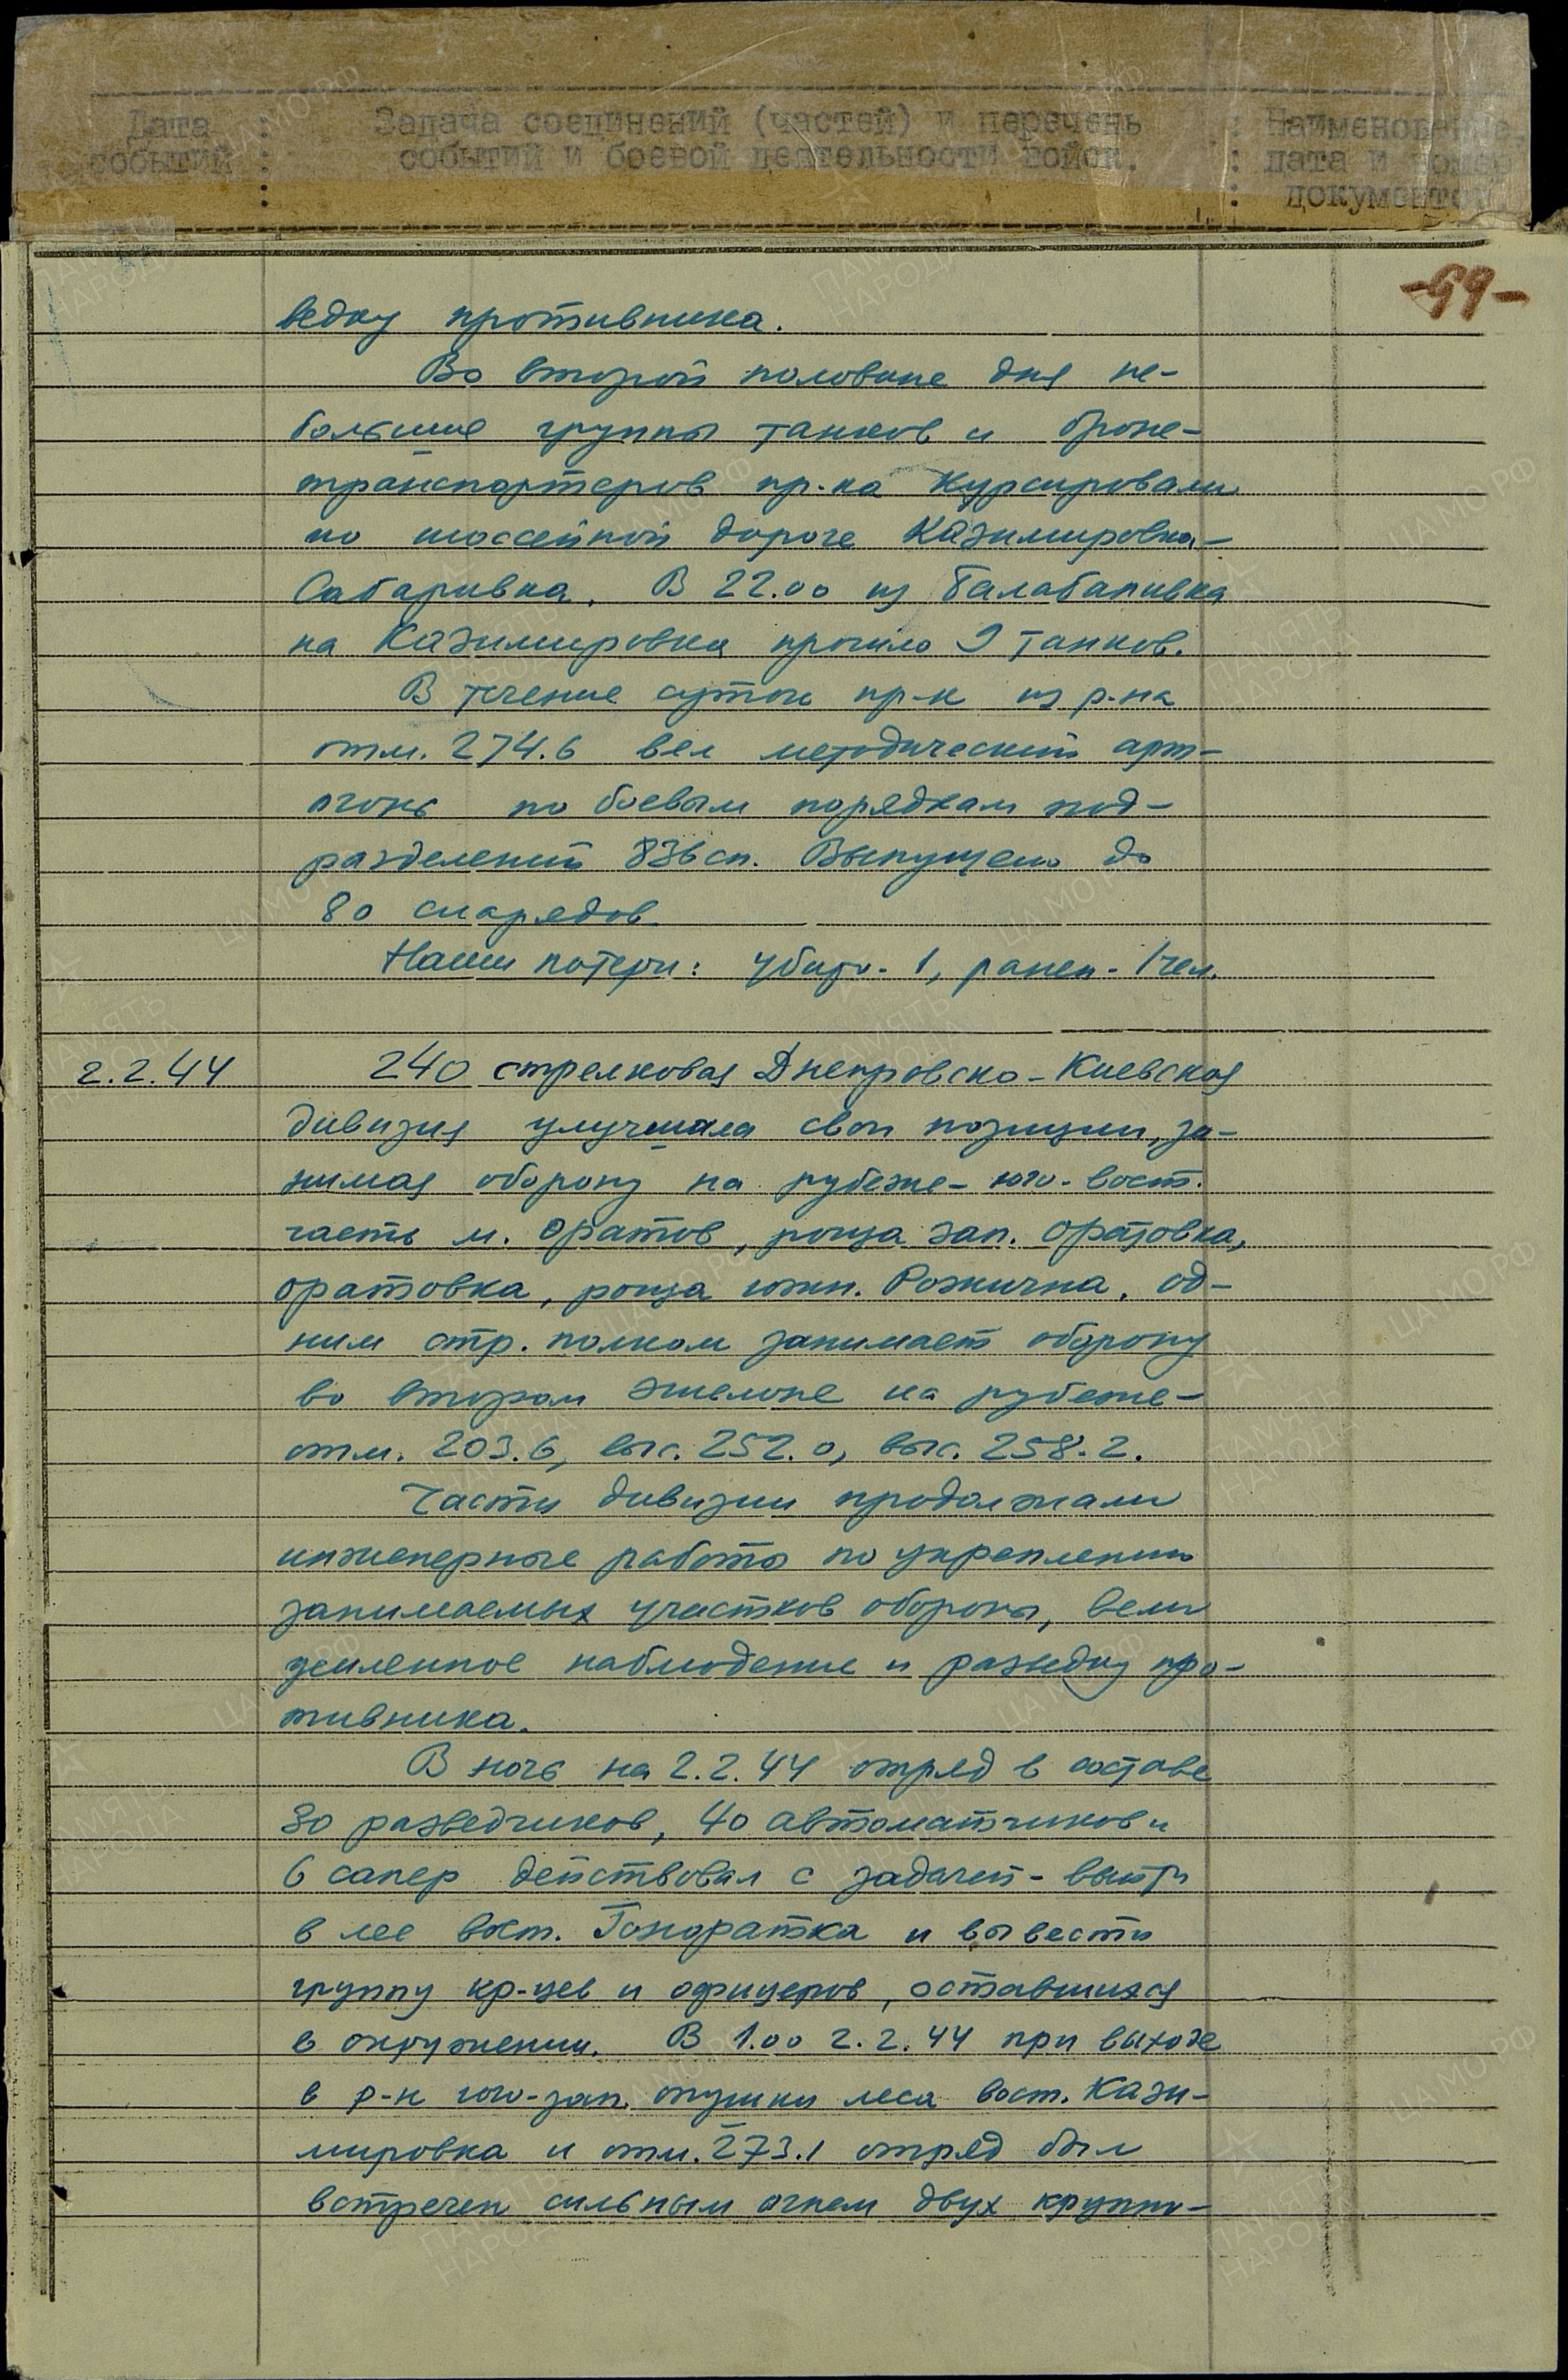 Дата : Задача соединений (частей) и перечень : Наименование,
событий : событий и боевой деятельности войск. : дата и номер
: : документов.
-59-
ведку противника.
Во второй половине дня не-
большие группы танков и броне-
транспортеров пр-ка курсировали
по шоссейной дороге Казимировка-
Сабаривка. В 22.00 из Балабанивка
на Казимировка прошло 9 танков.
В течение суток пр-к из р-на
отм. 274.6 вел методический арт-
огонь по боевым порядкам под-
разделений 836 сп. Выпущено до
80 снарядов.
Наши потери: убито - 1, ранен - 1 чел.
2.2.44 240 стрелковая Днепровско-Киевская
дивизия улучшала свои позиции, за-
нимая оборону на рубеже - юго-вост.
часть м. Оратов, роща зап. Оратовка,
Оратовка, роща южн. Рожична. Од-
ним стр. полком занимает оборону
во втором эшелоне на рубеже -
отм. 203.6, выс. 252.0, выс. 258.2.
Части дивизии продолжали
инженерные работы по укреплению
занимаемых участков обороны, вели
усиленное наблюдение и разведку про-
тивника.
В ночь на 2.2.44 отряд в составе
80 разведчиков, 40 автоматчиков и
6 сапер действовал с задачей - выйти
в лес вост. Гоноратка и вывести
группу кр-цев и офицеров, оставшихся
в окружении. В 1.00 2.2.44 при выходе
в р-н юго-зап. опушки леса вост. Кази-
мировка и отм. 273.1 отряд был
встречен сильным огнем двух крупно-